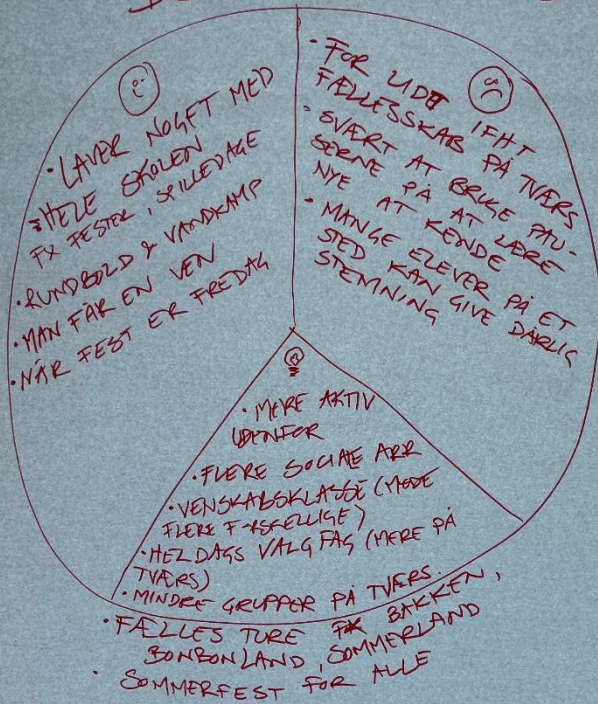 • LAVER NOGET MED
HELE SKOLEN
FX FESTER, SPILLEDAGE
• RUNDBOLD & VANDKAMP
• MAN FÅR EN VEN
• NÅR FEST ER FREDAG
• FOR LIDT IFHT
FÆLLESSKAB PÅ TVÆRS
• SVÆRT AT BRUGE PAU-
SERNE PÅ AT LÆRE
NYE AT KENDE
• MANGE ELEVER PÅ ET
STED KAN GIVE DÅRLIG
STEMNING
• MERE AKTIV
UDENFOR
• FLERE SOCIALE ARR
• VENSKABSKLASSE (MØDE
FLERE FORSKELLIGE)
• HELDAGS VALGFAG (MERE PÅ
TVÆRS)
• MINDRE GRUPPER PÅ TVÆRS.
• FÆLLES TURE FX BAKKEN,
BONBONLAND, SOMMERLAND
• SOMMERFEST FOR ALLE